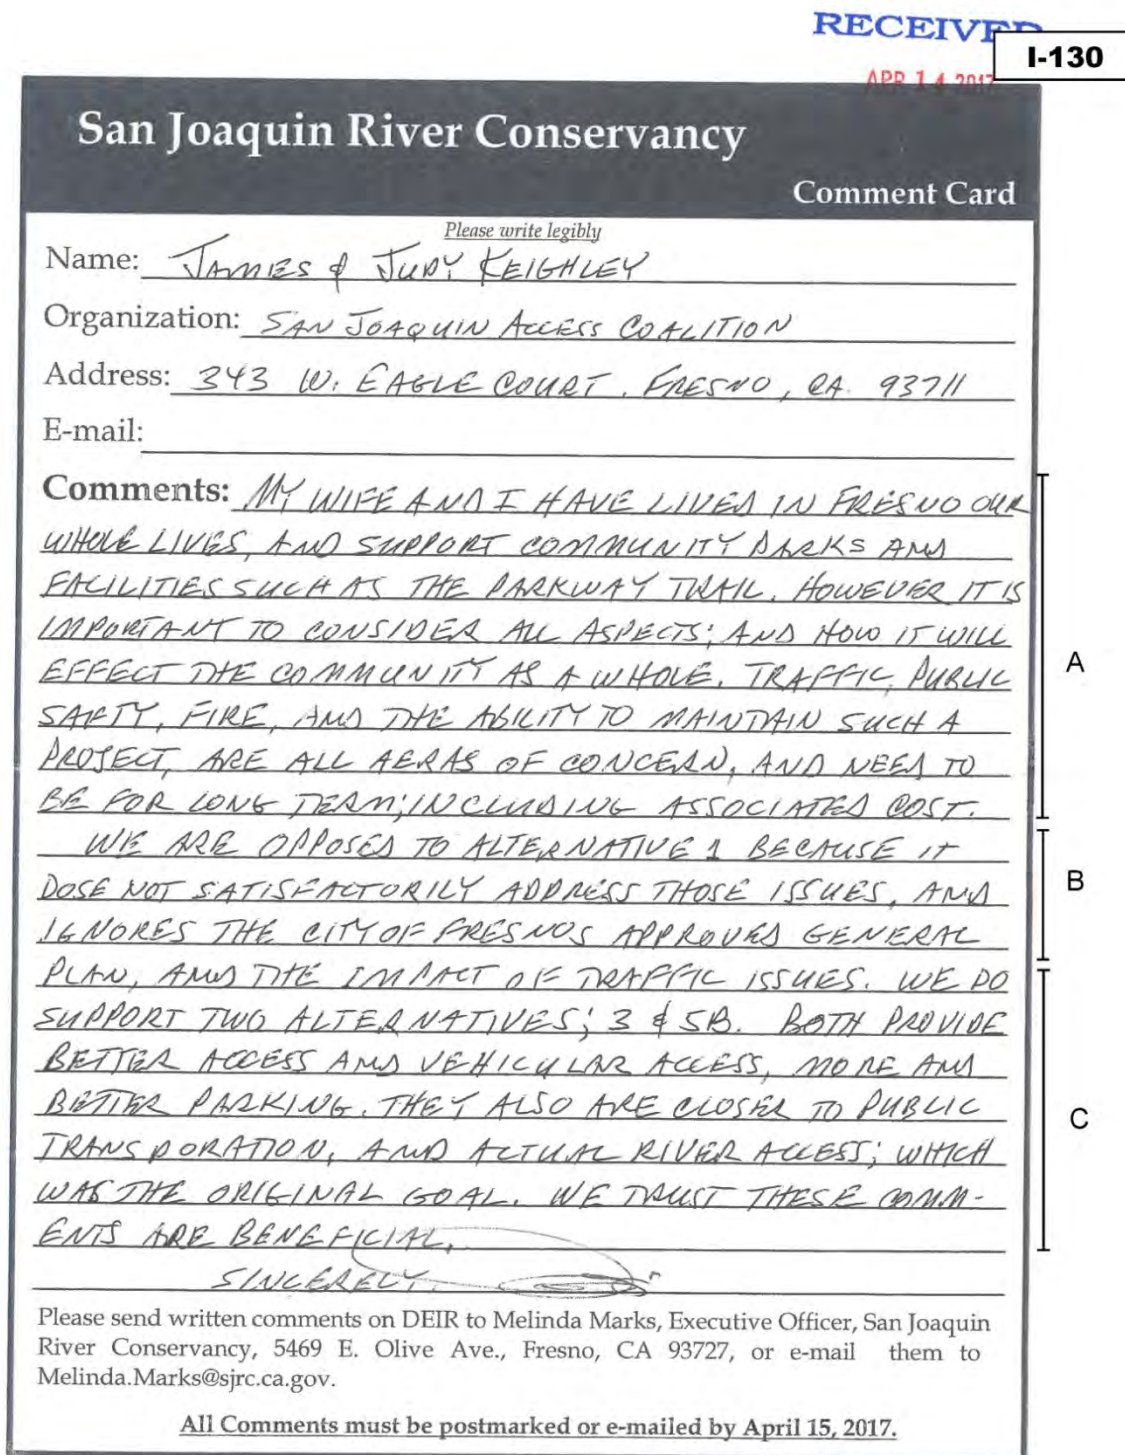 RECEIVED
I-130
APR 14 2017
San Joaquin River Conservancy
Comment Card
Please write legibly
Name: JAMES & JUDY KEIGHLEY
Organization: SAN JOAQUIN ACCESS COALITION
Address: 343 W. EAGLE COURT. FRESNO, CA. 93711
E-mail:
Comments: MY WIFE AND I HAVE LIVED IN FRESNO OUR
WHOLE LIVES, AND SUPPORT COMMUNITY PARKS AND
FACILITIES SUCH AS THE PARKWAY TRAIL. HOWEVER IT IS
IMPORTANT TO CONSIDER ALL ASPECTS; AND HOW IT WILL
EFFECT THE COMMUNITY AS A WHOLE. TRAFFIC, PUBLIC
A
SAFTY, FIRE, AND THE ABILITY TO MAINTAIN SUCH A
PROJECT, ARE ALL AERAS OF CONCERN, AND NEED TO
BE FOR LONG TERM; INCLUDING ASSOCIATED COST.
WE ARE OPPOSED TO ALTERNATIVE 1 BECAUSE IT
B
DOSE NOT SATISFACTORILY ADDRESS THOSE ISSUES, AND
IGNORES THE CITY OF FRESNOS APPROVED GENERAL
PLAN, AND THE IMPACT OF TRAFFIC ISSUES. WE DO
SUPPORT TWO ALTERNATIVES; 3 & 5B. BOTH PROVIDE
BETTER ACCESS AND VEHICULAR ACCESS, MORE AND
BETTER PARKING. THEY ALSO ARE CLOSER TO PUBLIC
C
TRANSPORATION, AND ACTUAL RIVER ACCESS; WHICH
WAS THE ORIGINAL GOAL. WE TRUST THESE COMM-
ENTS ARE BENEFICIAL.
SINCERELY.
Please send written comments on DEIR to Melinda Marks, Executive Officer, San Joaquin
River Conservancy, 5469 E. Olive Ave., Fresno, CA 93727, or e-mail them to
Melinda.Marks@sjrc.ca.gov.
All Comments must be postmarked or e-mailed by April 15, 2017.